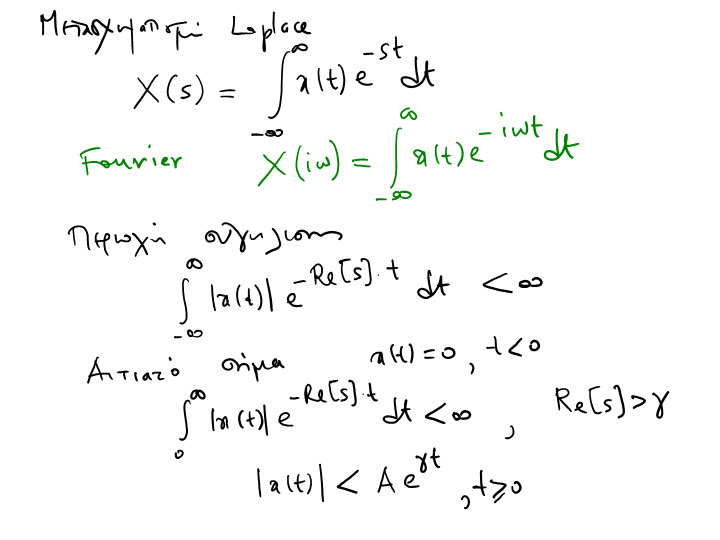 Μετασχηματισμοί Laplace
X(s) = ∫_{-∞}^{∞} x(t) e^{-st} dt
Fourier X(iω) = ∫_{-∞}^{∞} x(t) e^{-iωt} dt
Περιοχή σύγκλισης
∫_{-∞}^{∞} |x(t)| e^{-Re[s]·t} dt < ∞
Αιτιατό σήμα x(t) = 0, t < 0
∫_{0}^{∞} |x(t)| e^{-Re[s]·t} dt < ∞, Re[s] > γ
|x(t)| < A e^{γt}, t ≥ 0